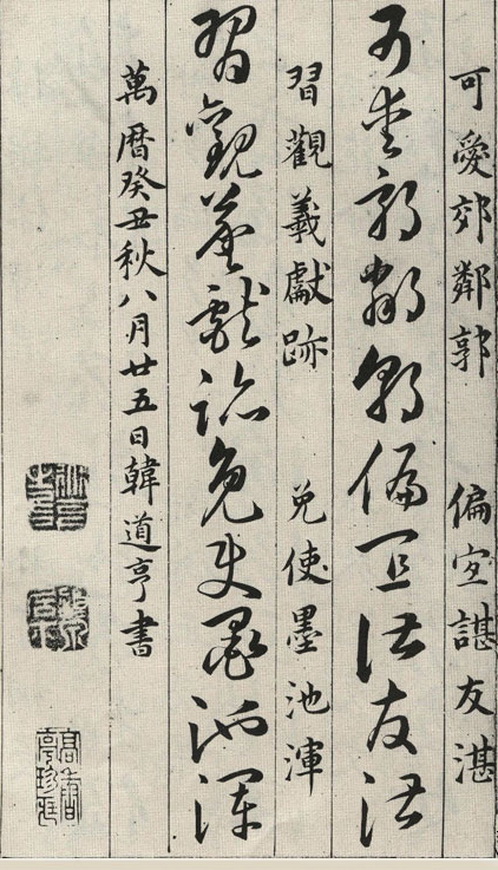 可愛郊鄰郭　偏宜諶友湛
可愛郊鄰郭偏宜諶友湛
習觀羲獻跡　免使墨池渾
習觀羲獻跡免使墨池渾
萬曆癸丑秋八月廿五日韓道亨書